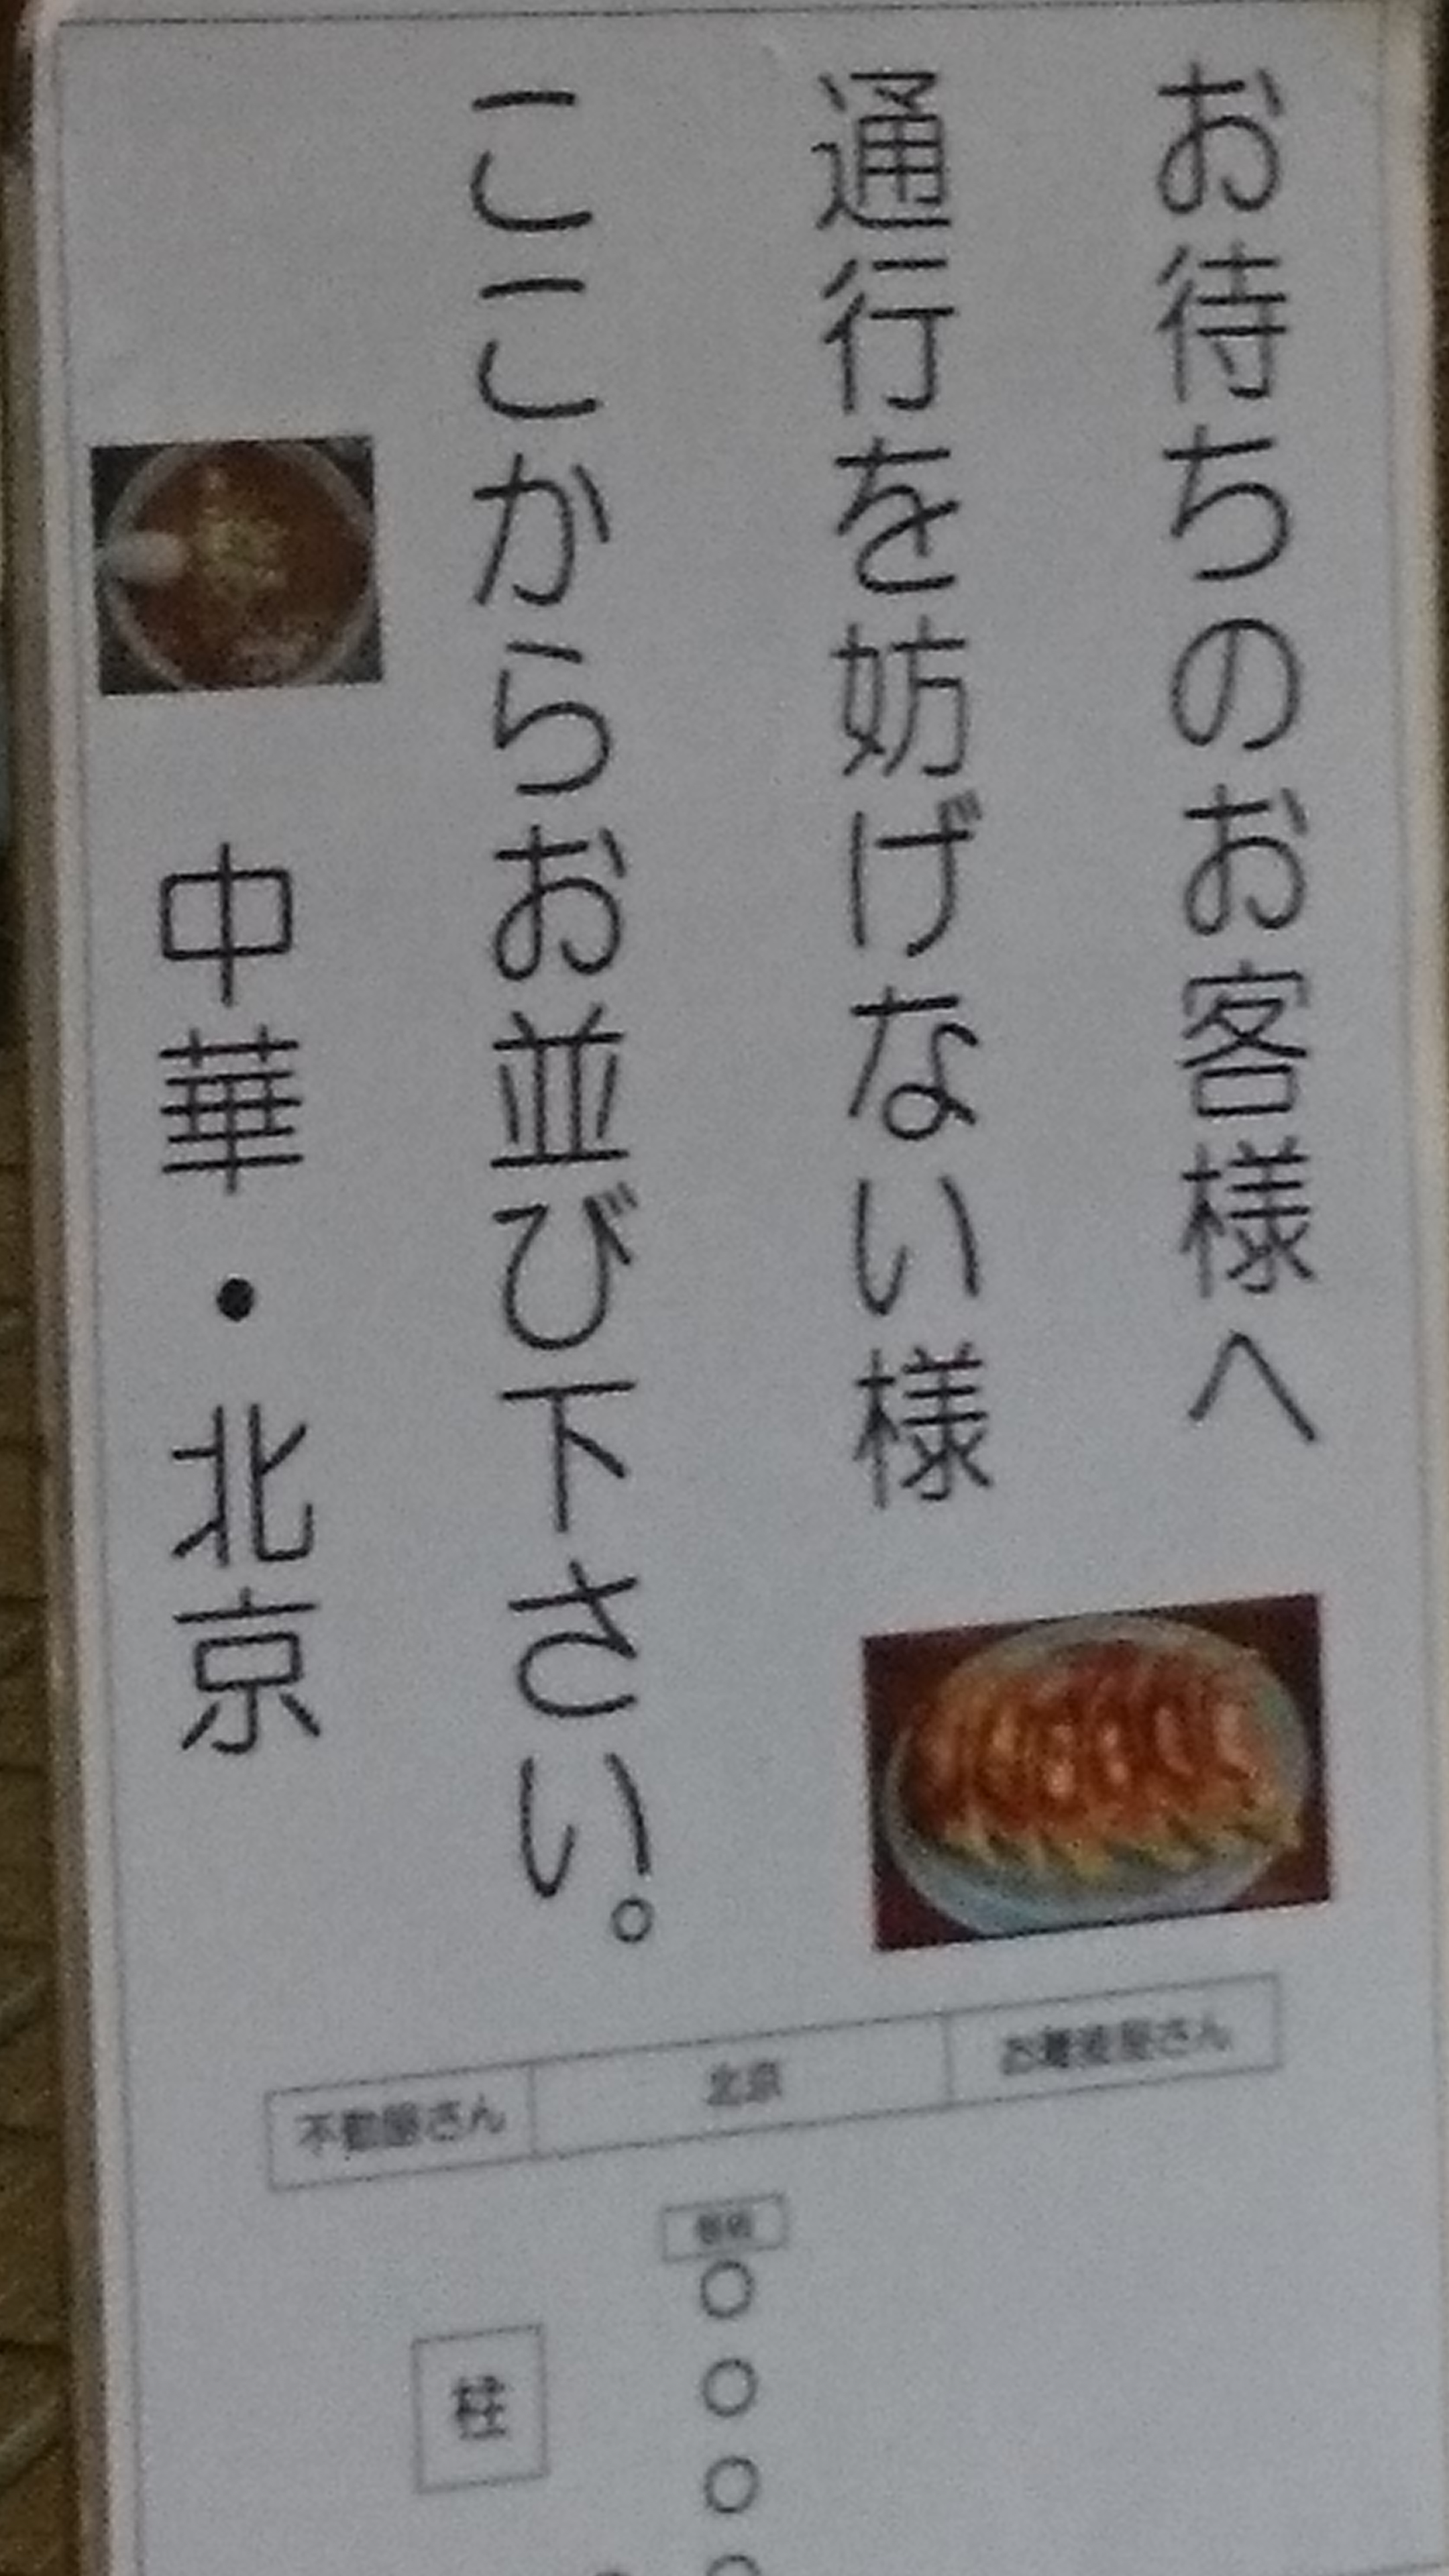 お待ちのお客様へ
通行を妨げない様
ここからお並び下さい。
中華・北京
不動屋さん
北京
柱